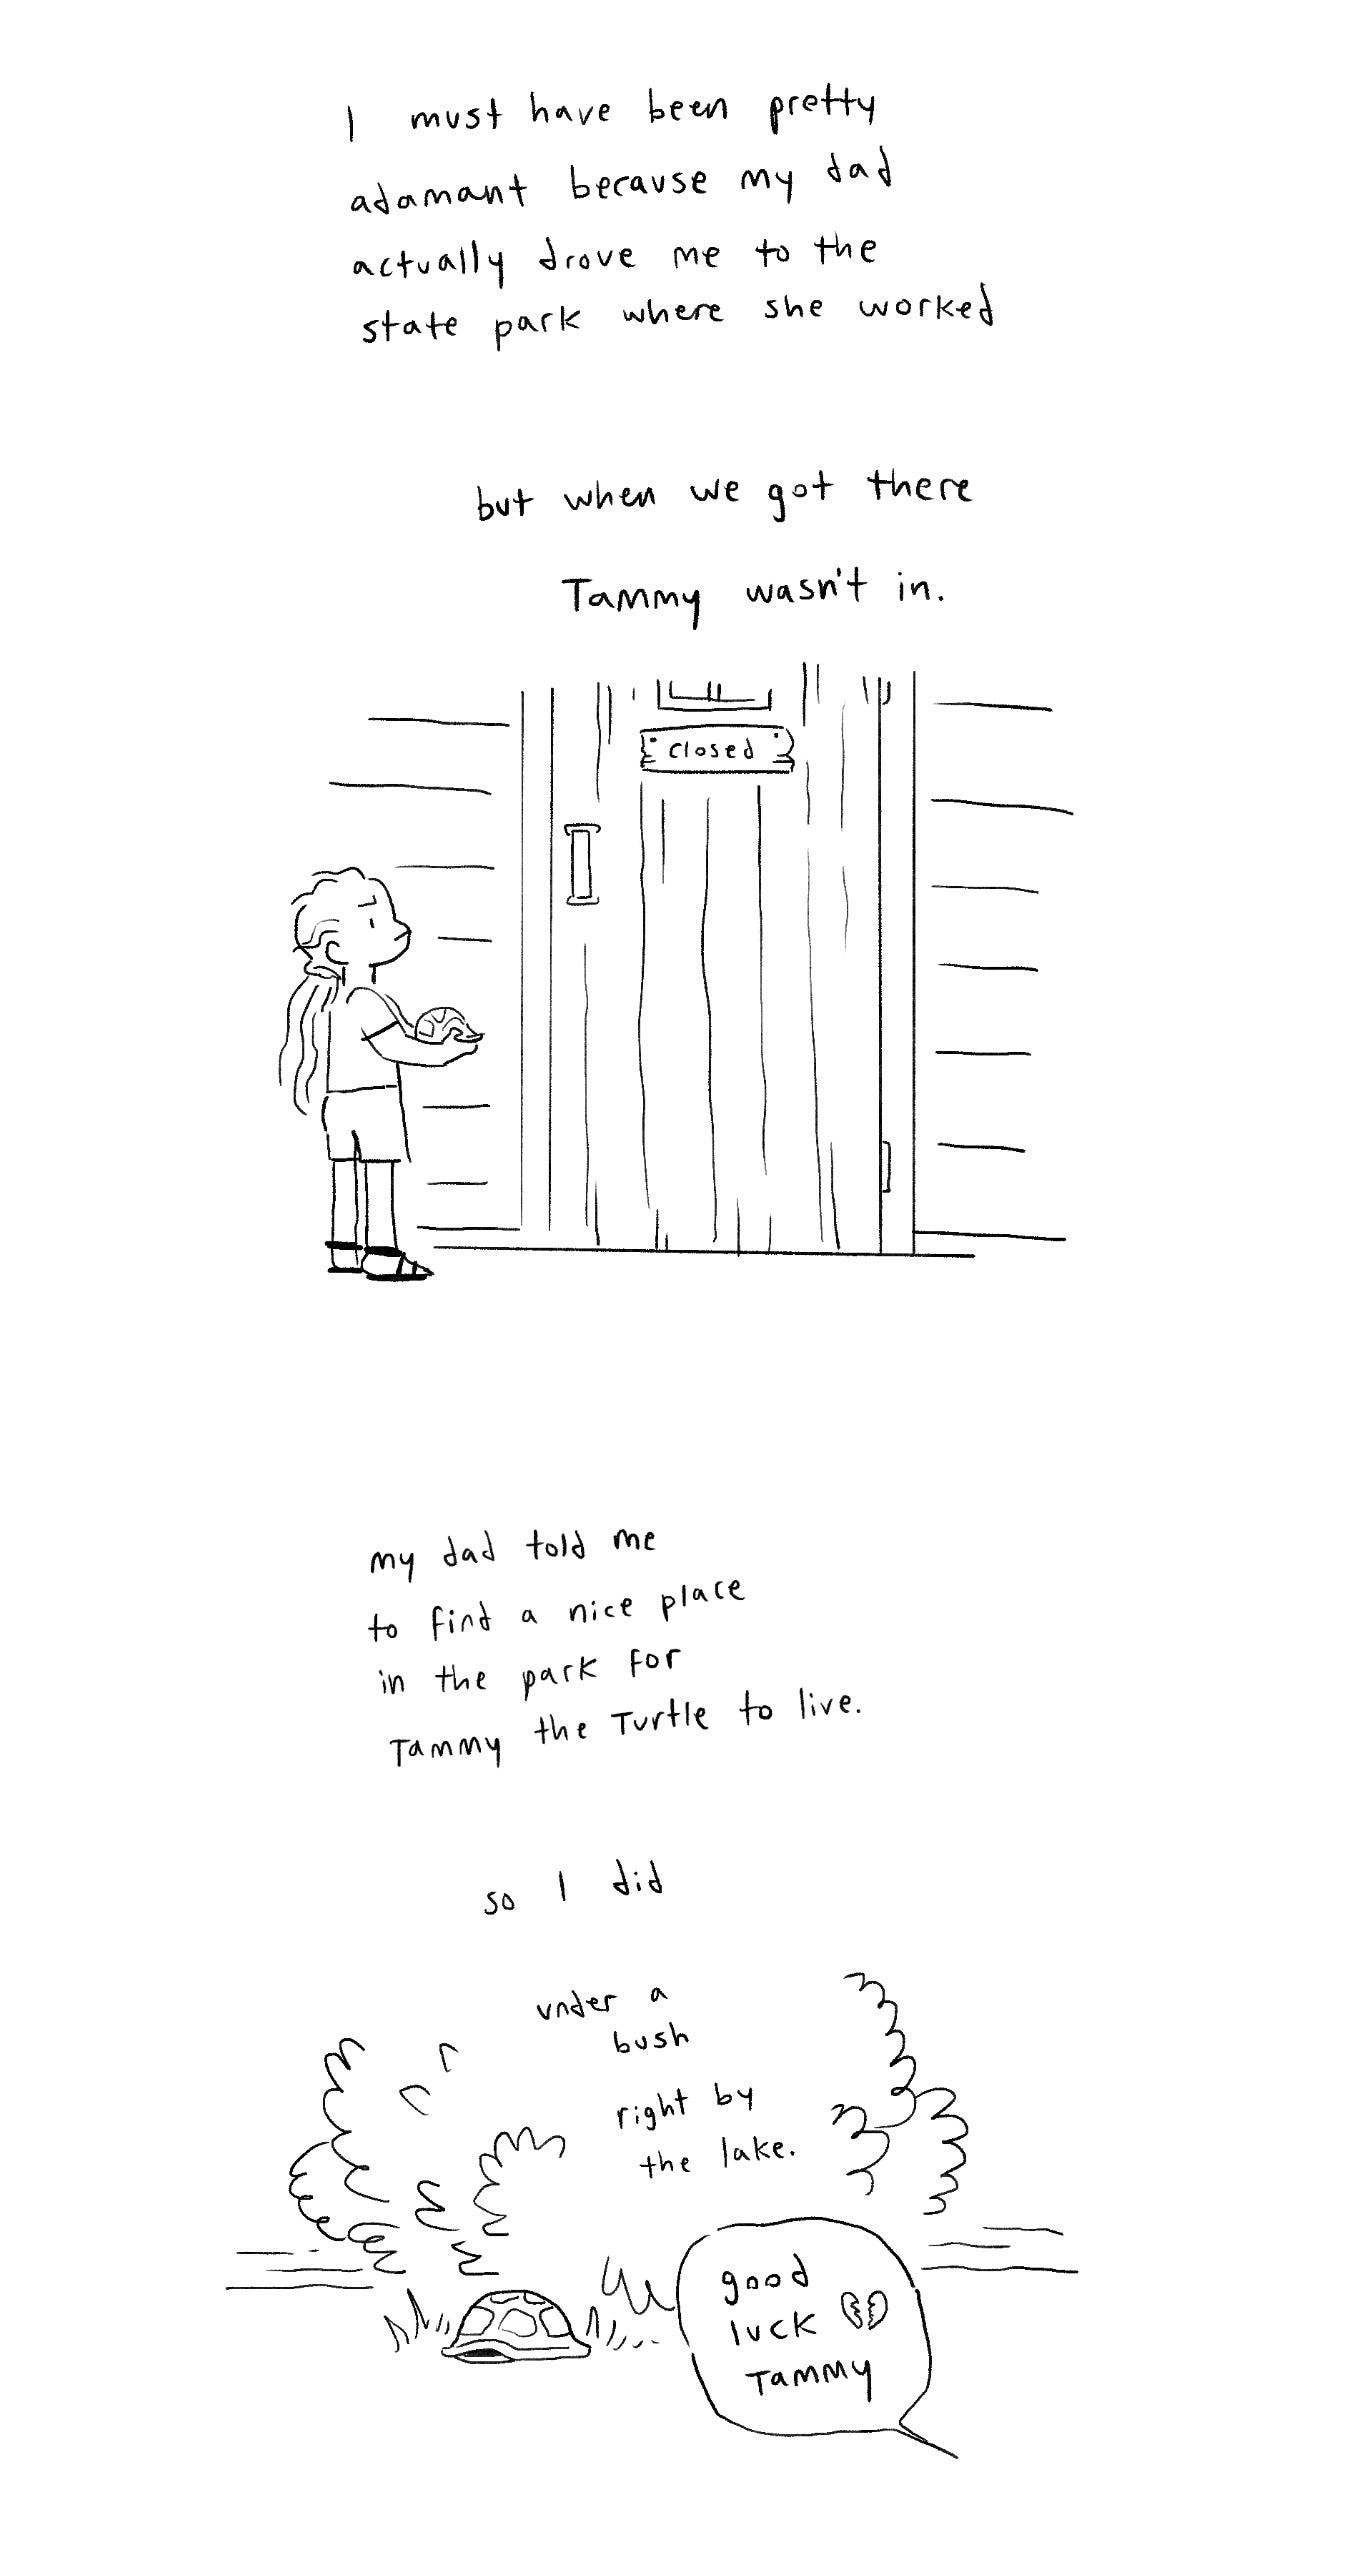 I must have been pretty
adamant because my dad
actually drove me to the
state park where she worked
but when we got there
Tammy wasn't in.
closed
my dad told me
to find a nice place
in the park for
Tammy the Turtle to live.
so I did
under a
bush
right by
the lake.
good
luck
Tammy